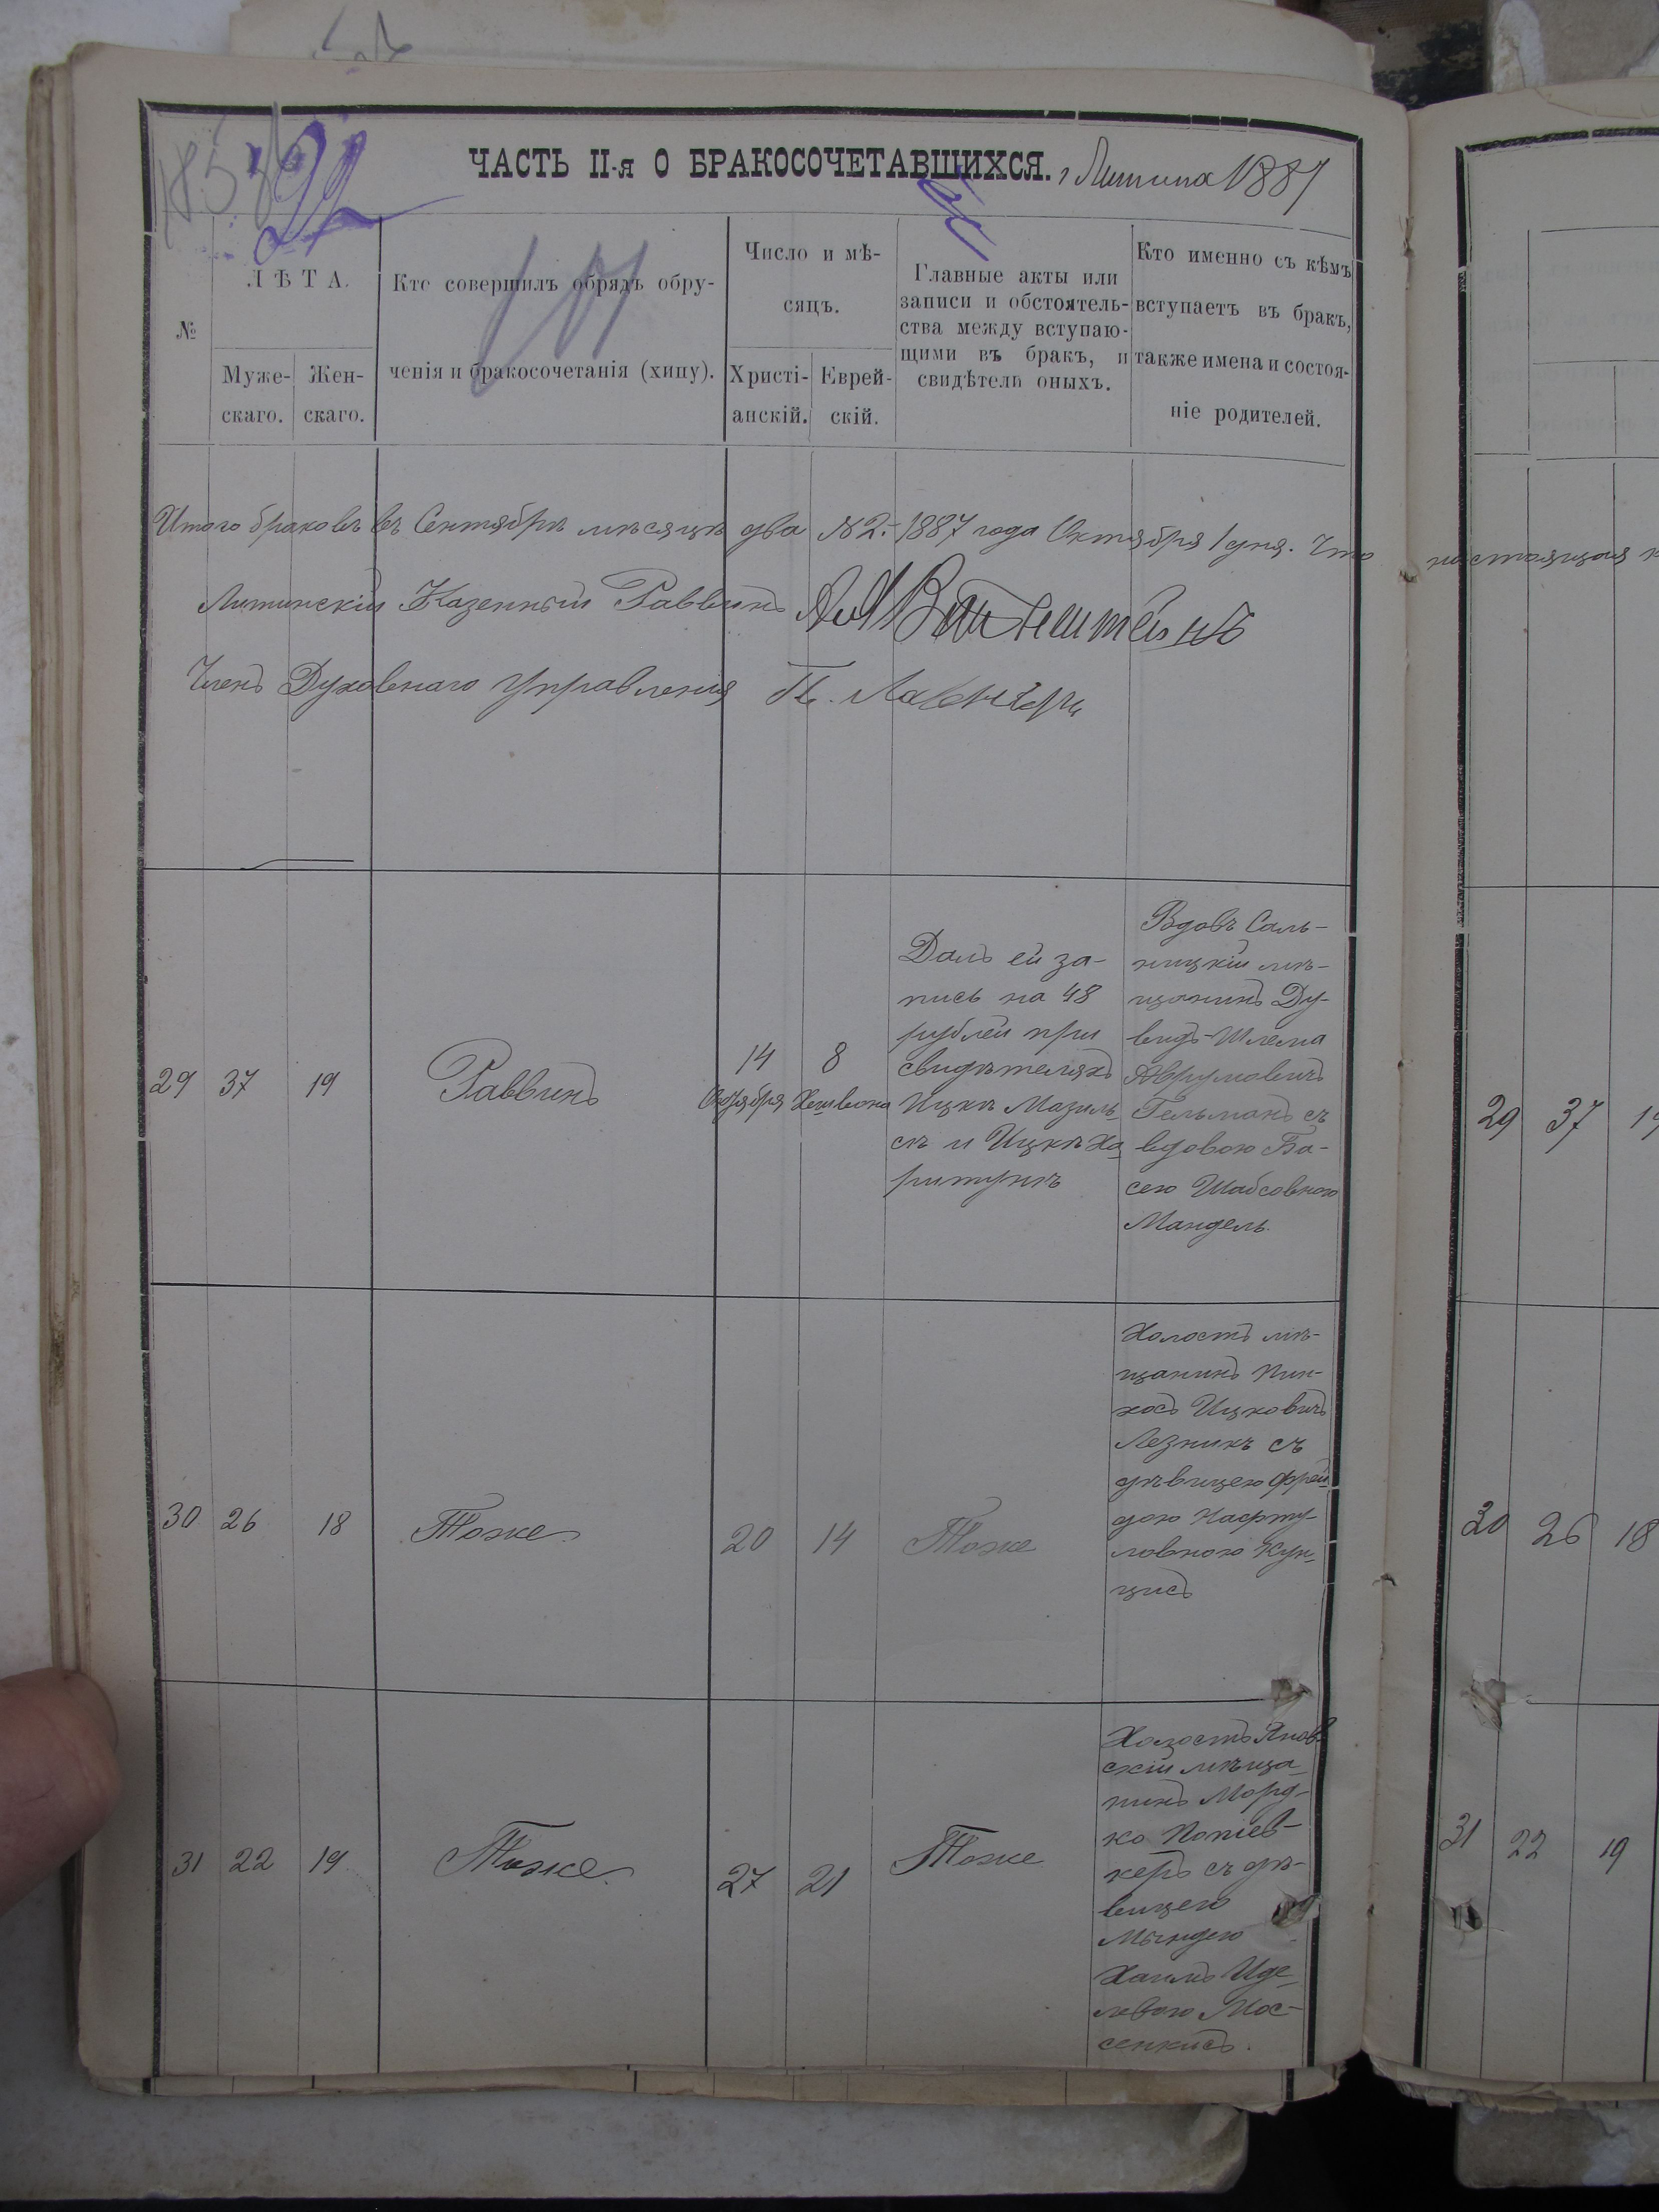 ЧАСТЬ II-я О БРАКОСОЧЕТАВШИХСЯ. г Литина 1887
№
ЛѢТА.
Муже-
скаго.
Жен-
скаго.
Кто совершилъ обрядъ обру-
ченія и бракосочетанія (хипу).
Число и мѣ-
сяцъ.
Христі-
анскій.
Еврей-
скій.
Главные акты или
записи и обстоятель-
ства между вступаю-
щими въ бракъ, и
свидѣтели оныхъ.
Кто именно съ кѣмъ
вступаетъ въ бракъ,
также имена и состоя-
ніе родителей.
Итого браковъ въ Сентябрѣ мѣсяцѣ два №2. 1887 года Октября 1 дня. Что настоящая
Литинскій Казенный Раввинъ
Членъ Духовнаго Управленія
29
37
19
Раввинъ
14
Октября
8
Хешвона
Далъ ей за-
пись на 48
рублей при
свидѣтеляхъ
Ицкѣ Мазиль
сѣ и Ицкѣ Ха
ритункѣ
Вдовъ Саль-
ницкій мѣ-
щанинъ Ду-
видъ-Шлема
Аврумовичъ
Гельманъ съ
вдовою Ба-
сею Шабсовною
Мандель.
30
26
18
Тоже
20
14
Тоже
Холостъ мѣ-
щанинъ Пин-
хосъ Ицковичъ
Лезникъ съ
дѣвицею Фрей
дою Нафту-
ловною Кун-
цисъ
31
22
19
Тоже
27
21
Тоже
Холостъ Янов
скій мѣща
нинъ Морд-
ко
керъ съ дѣ-
вицею
Миндею
Хаимъ Иде
левою Мос-
сенкисъ.
29 37 19
30 26 18
31 22 19